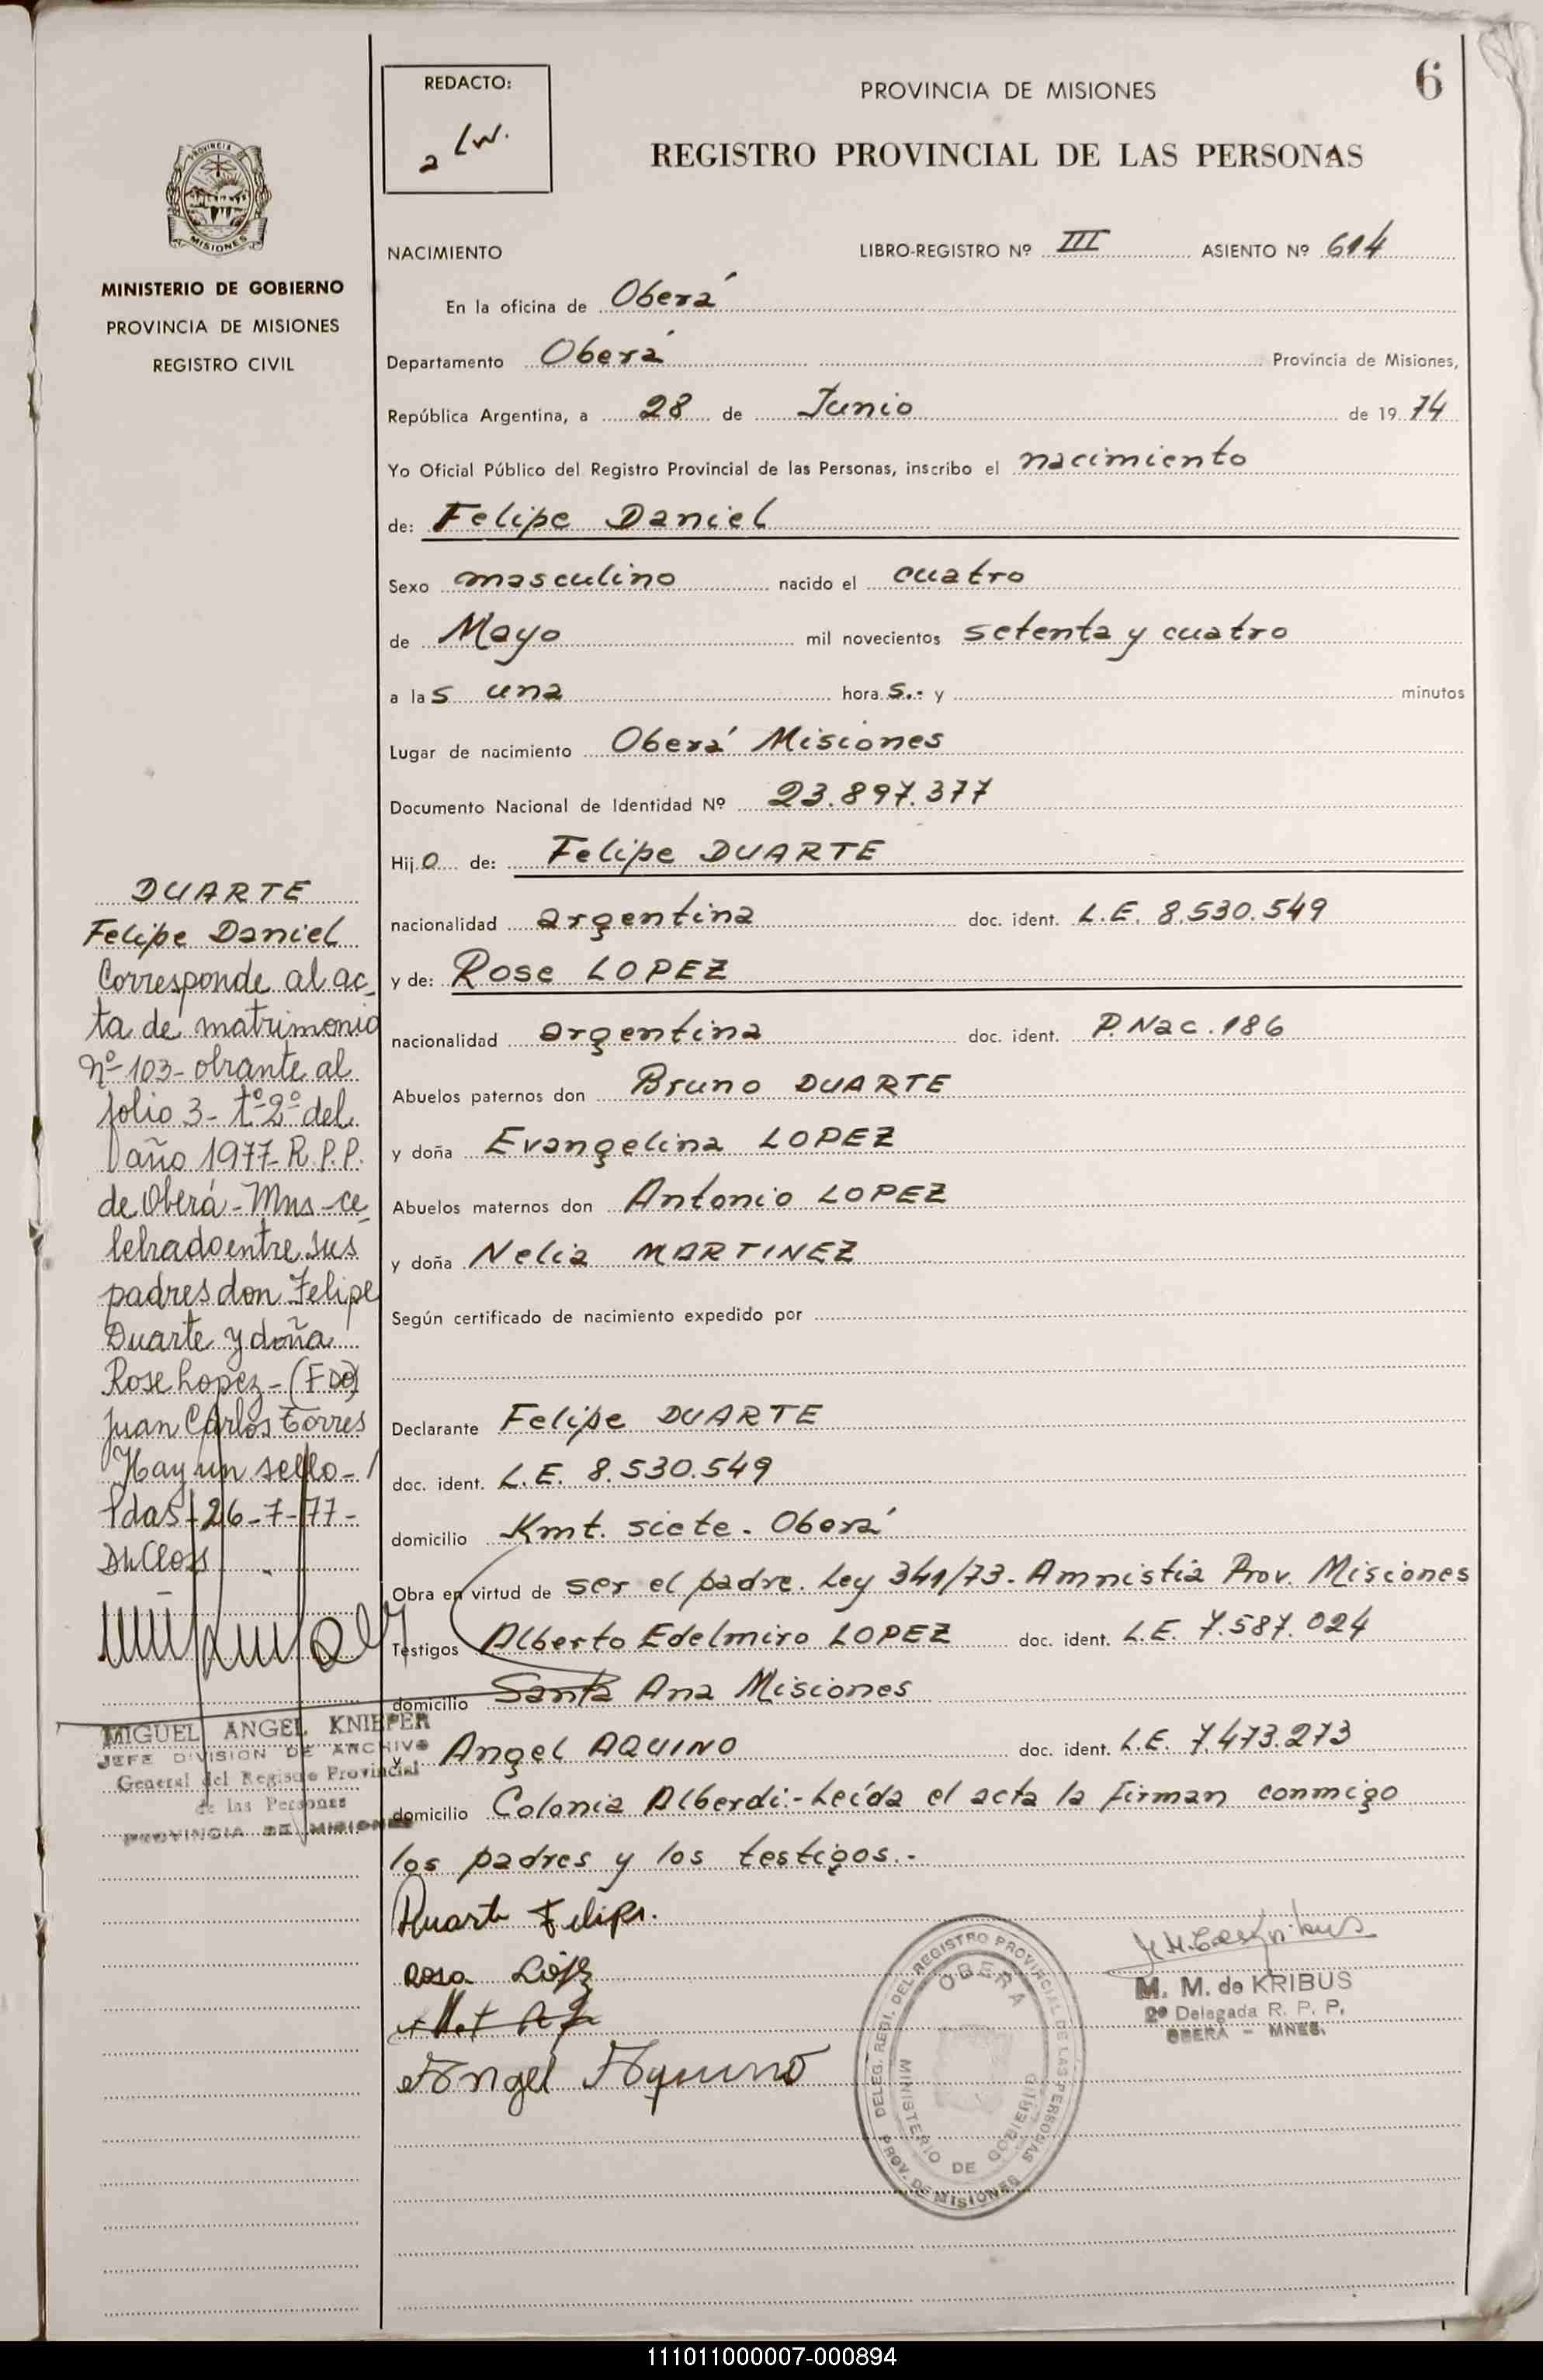 6
REDACTO:
PROVINCIA DE MISIONES
REGISTRO PROVINCIAL DE LAS PERSONAS
PROVINCIA DE
MISIONES
MINISTERIO DE GOBIERNO
PROVINCIA DE MISIONES
REGISTRO CIVIL
NACIMIENTO LIBRO-REGISTRO Nº III ASIENTO Nº 614
En la oficina de Oberá
Departamento Oberá Provincia de Misiones,
República Argentina, a 28 de Junio de 1974
Yo Oficial Público del Registro Provincial de las Personas, inscribo el nacimiento
de: Felipe Daniel
Sexo masculino nacido el cuatro
de Mayo mil novecientos setenta y cuatro
a las una horas.- y minutos
Lugar de nacimiento Oberá Misiones
Documento Nacional de Identidad Nº 23.897.377
Hijo de: Felipe DUARTE
nacionalidad argentina doc. ident. L.E. 8.530.549
y de: Rose LOPEZ
nacionalidad argentina doc. ident. P.Nac. 186
Abuelos paternos don Bruno DUARTE
y doña Evangelina LOPEZ
Abuelos maternos don Antonio LOPEZ
y doña Nelia MARTINEZ
Según certificado de nacimiento expedido por
Declarante Felipe DUARTE
doc. ident. L.E. 8.530.549
domicilio Kmt. siete. Oberá
Obra en virtud de ser el padre. Ley 341/73. Amnistia Prov. Misiones
Testigos Alberto Edelmiro LOPEZ doc. ident. L.E. 7.587.024
domicilio Santa Ana Misiones
y Angel AQUINO doc. ident. L.E. 7.473.273
domicilio Colonia Alberdi.- Leída el acta la firman conmigo
los padres y los testigos.-
Duarte Felipe.
Rosa López
Angel Aquino
DELEG. REGI. DEL REGISTRO PROVINCIAL DE LAS PERSONAS
OBERA
MINISTERIO DE GOBIERNO
PROV. DE MISIONES
M. M. de KRIBUS
2ª Delegada R. P. P.
OBERA - MNES.
DUARTE
Felipe Daniel
Corresponde al ac-
ta de matrimonio
Nº 103- obrante al
folio 3- tº 2º del
año 1977- R.P.P.
de Oberá- Mns- ce-
lebrado entre sus
padres don Felipe
Duarte y doña
Rose Lopez- (FDO)
Juan Carlos Torres
Hay un sello- /
Pdas- 26-7-77-
MIGUEL ANGEL KNIEPER
JEFE DIVISION DE ARCHIVO
General del Registro Provincial
de las Personas
PROVINCIA DE MISIONES
111011000007-000894